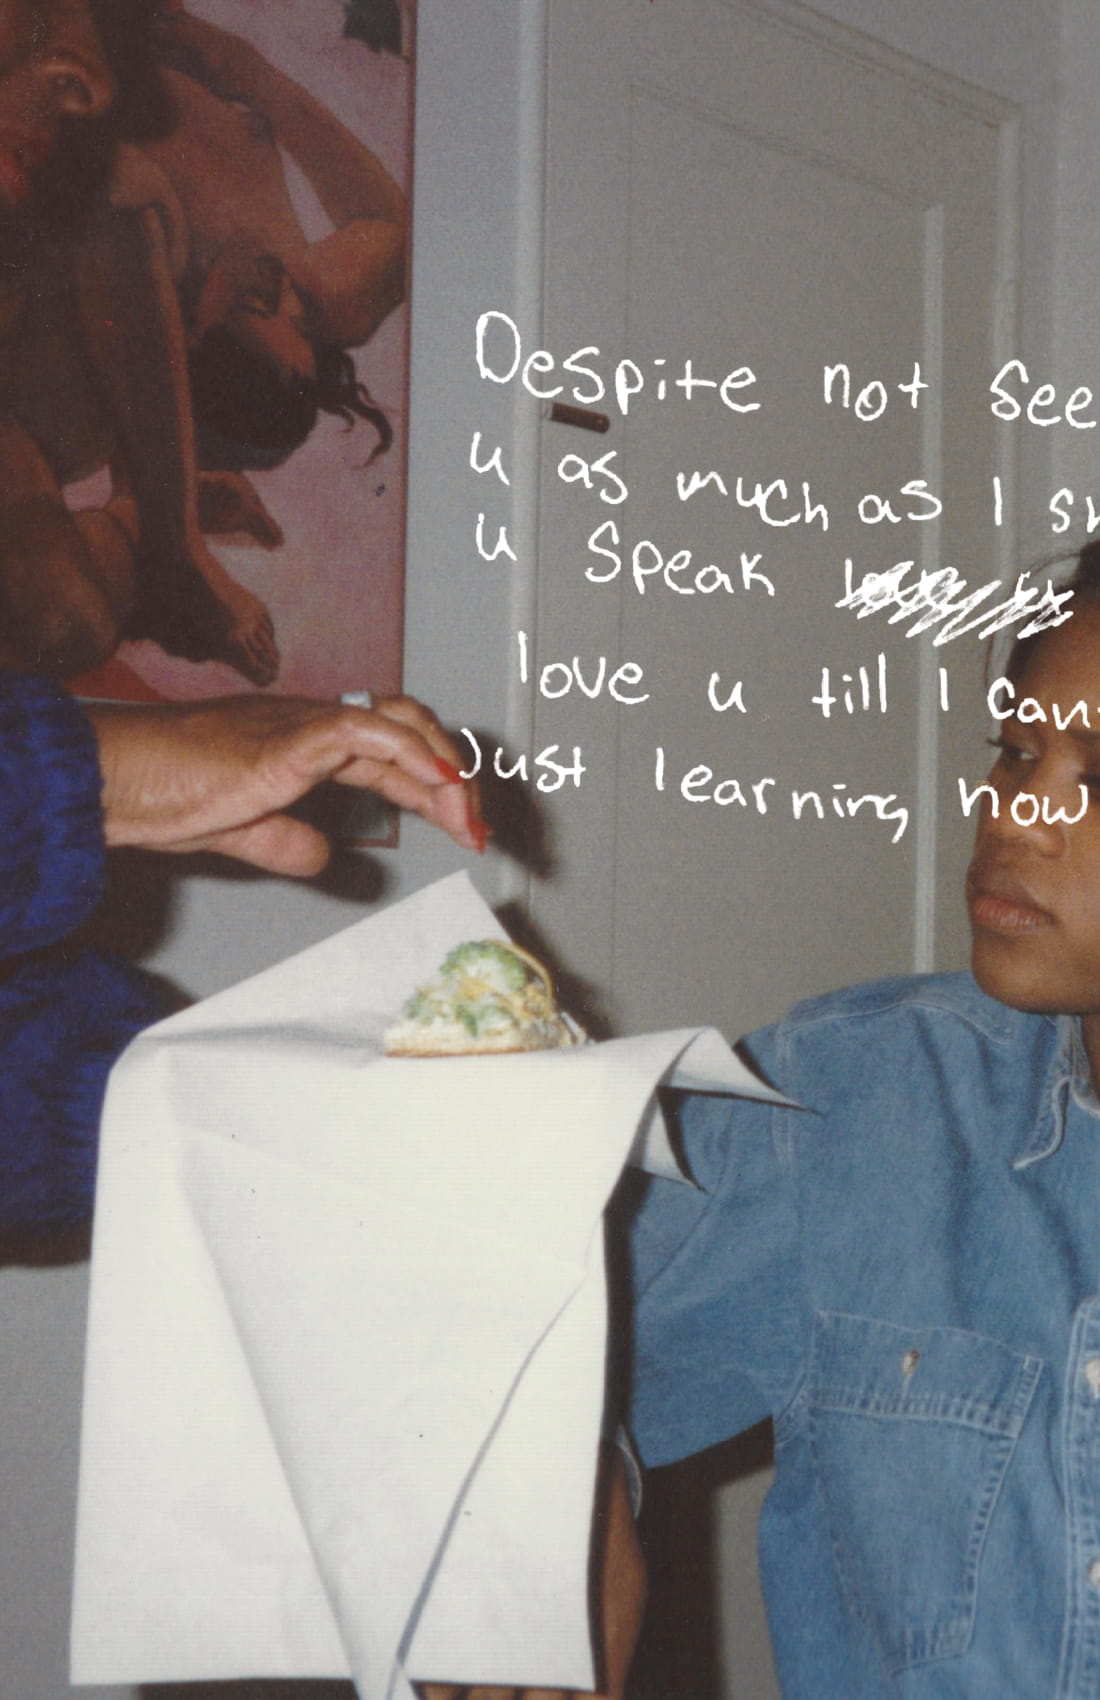 Despite not see
u as much as I
u speak
love u till I can
Just learning how